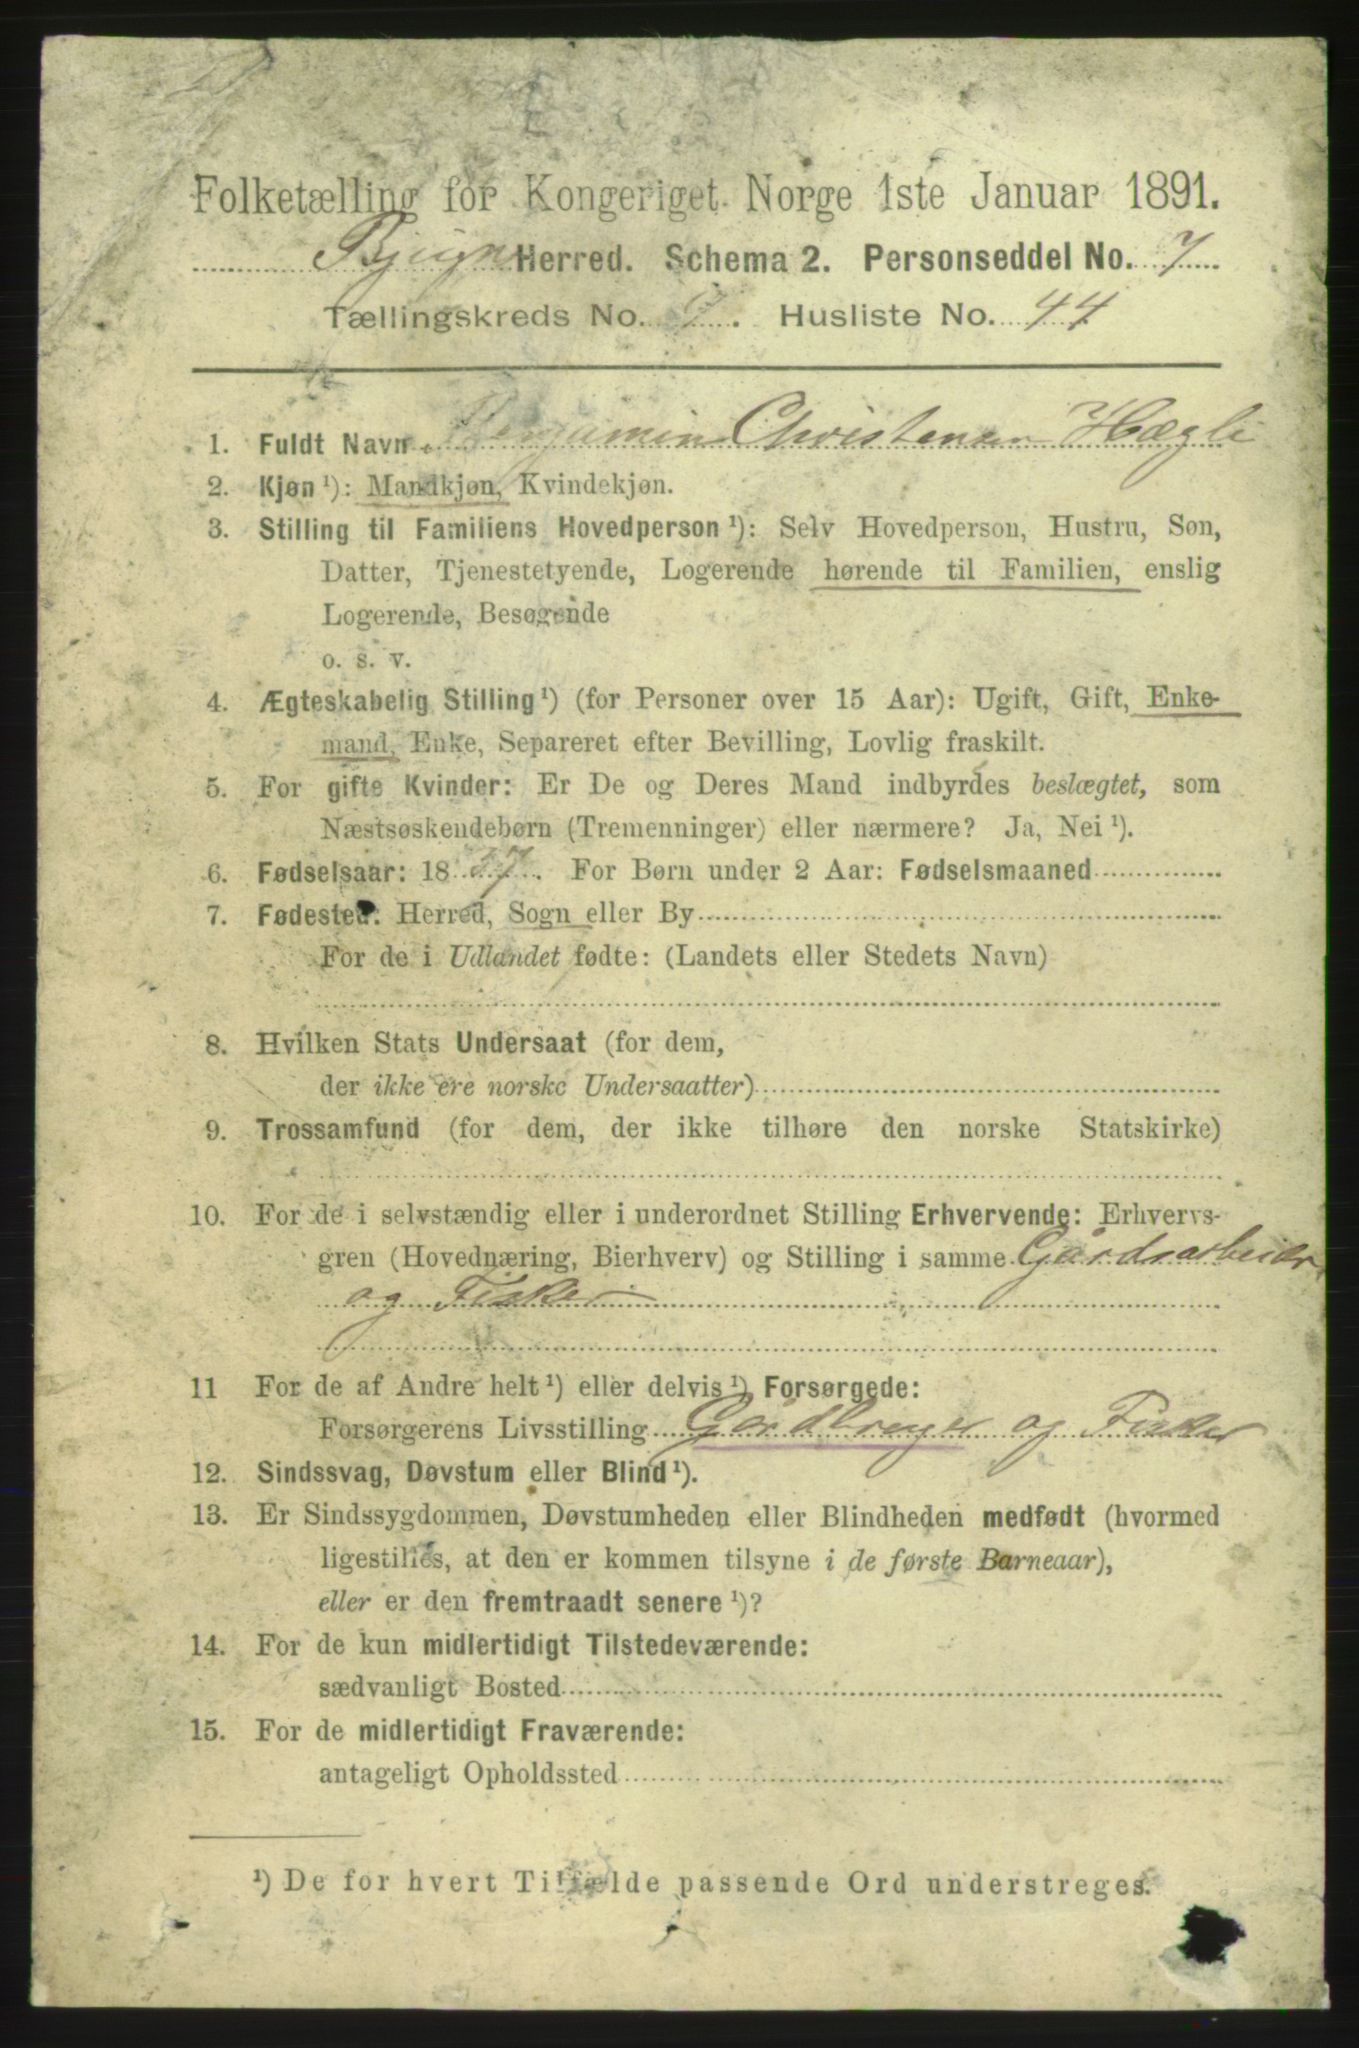 Folketælling for Kongeriget Norge 1ste Januar 1891.
Bjugn Herred. Schema 2. Personseddel No. 7
Tællingskreds No. 9. Husliste No. 44
1. Fuldt Navn Benjamin Christensen Hægli
2. Kjøn ¹): Mandkjøn, Kvindekjøn.
3. Stilling til Familiens Hovedperson ¹): Selv Hovedperson, Hustru, Søn,
Datter, Tjenestetyende, Logerende hørende til Familien, enslig
Logerende, Besøgende
o. s. v.
4. Ægteskabelig Stilling ¹) (for Personer over 15 Aar): Ugift, Gift, Enke-
mand, Enke, Separeret efter Bevilling, Lovlig fraskilt.
5. For gifte Kvinder: Er De og Deres Mand indbyrdes beslægtet, som
Næstsøskendebørn (Tremenninger) eller nærmere? Ja, Nei ¹).
6. Fødselsaar: 1837. For Børn under 2 Aar: Fødselsmaaned
7. Fødested: Herred, Sogn eller By
For de i Udlandet fødte: (Landets eller Stedets Navn)
8. Hvilken Stats Undersaat (for dem,
der ikke ere norske Undersaatter)
9. Trossamfund (for dem, der ikke tilhøre den norske Statskirke)
10. For de i selvstændig eller i underordnet Stilling Erhvervende: Erhvervs-
gren (Hovednæring, Bierhverv) og Stilling i samme Gårdsarbeider
og Fisker
11 For de af Andre helt ¹) eller delvis ¹) Forsørgede:
Forsørgerens Livsstilling Gårdbruger og Fisker
12. Sindssvag, Døvstum eller Blind ¹).
13. Er Sindssygdommen, Døvstumheden eller Blindheden medfødt (hvormed
ligestilles, at den er kommen tilsyne i de første Barneaar),
eller er den fremtraadt senere ¹)?
14. For de kun midlertidigt Tilstedeværende:
sædvanligt Bosted
15. For de midlertidigt Fraværende:
antageligt Opholdssted
¹) De for hvert Tilfælde passende Ord understreges.